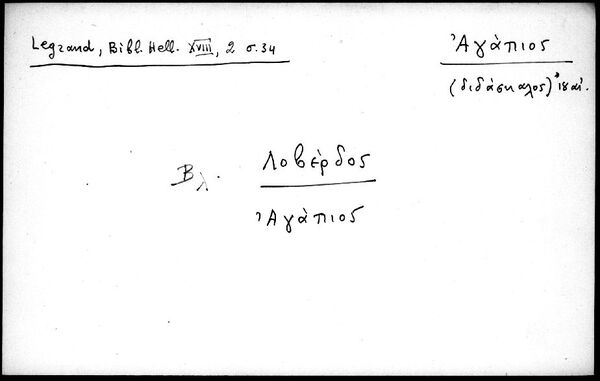 Legrand, Bibl. Hell. XVIII, 2 σ. 34
Ἀγάπιος
(διδάσκαλος) 18 αἰ.
Βλ. Λοβέρδος
Ἀγάπιος